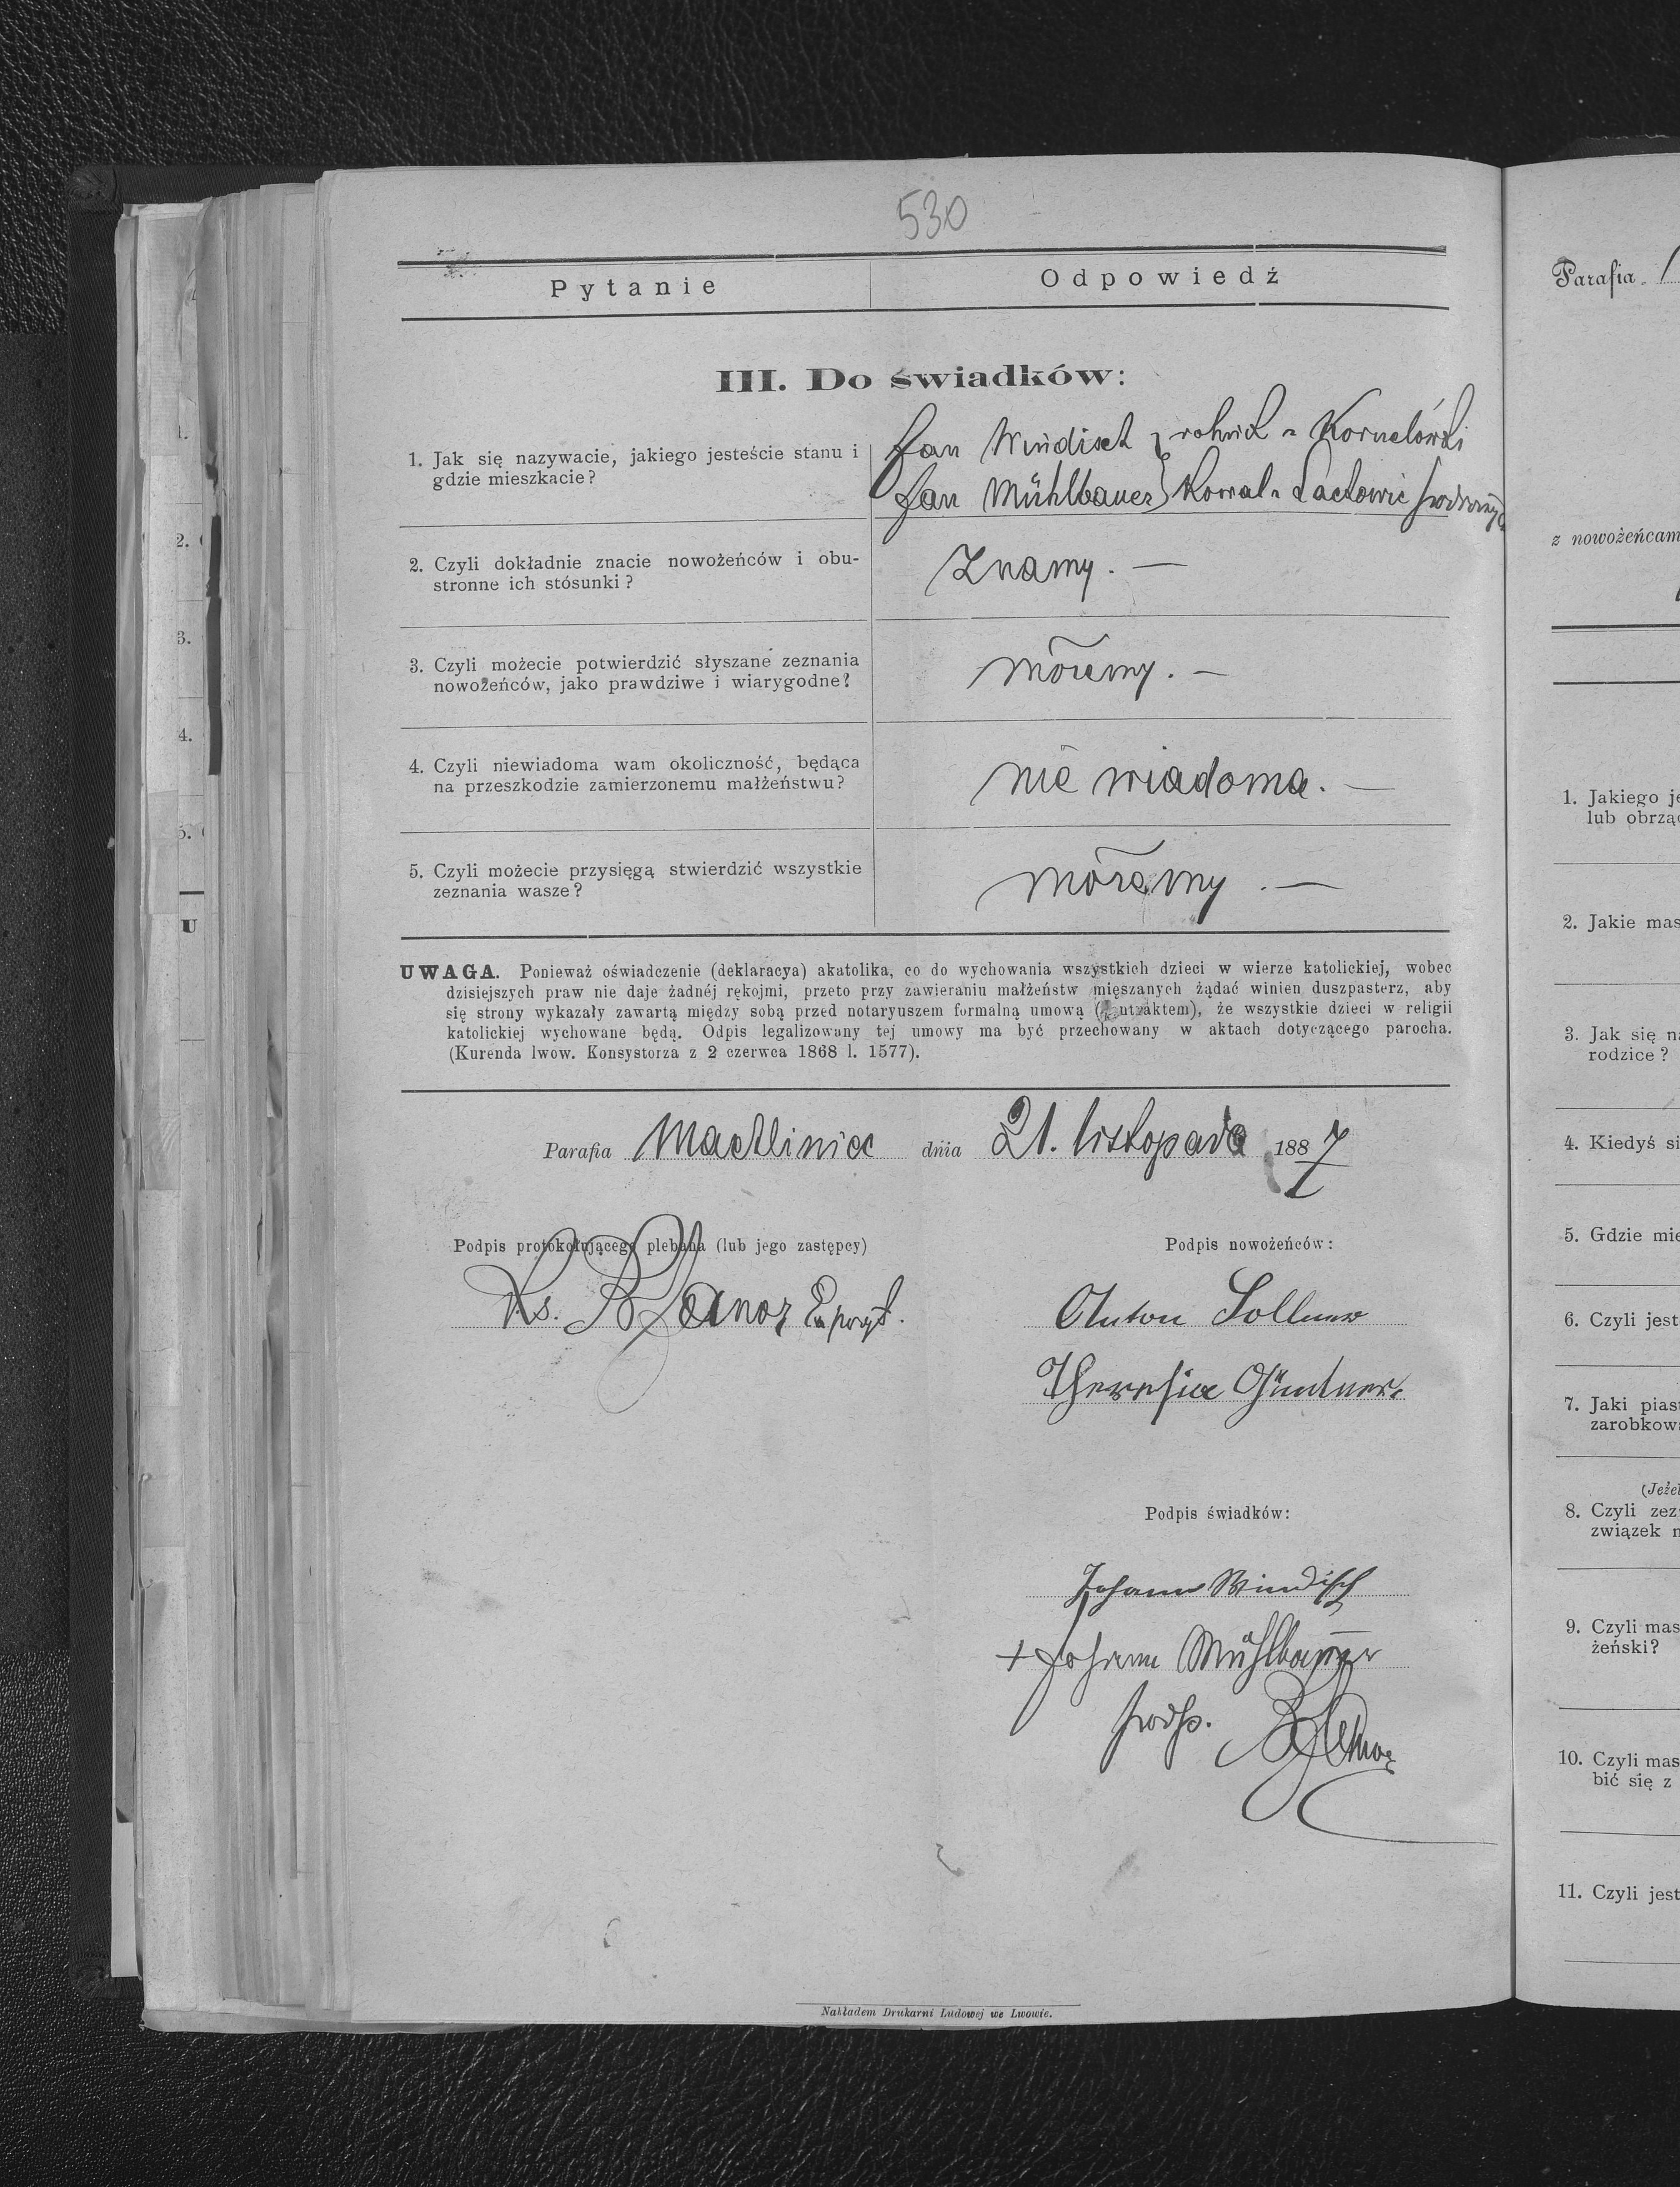 530
Pytanie
Odpowiedź
III. Do świadków:
1. Jak się nazywacie, jakiego jesteście stanu i
gdzie mieszkacie?
Jan Windisch } rolnik z Kornelówki
Jan Mühlbauer } Kowal z Lachowic
2. Czyli dokładnie znacie nowożeńców i obu-
stronne ich stósunki?
Znamy. —
3. Czyli możecie potwierdzić słyszane zeznania
nowożeńców, jako prawdziwe i wiarygodne?
możemy. —
4. Czyli niewiadoma wam okoliczność, będąca
na przeszkodzie zamierzonemu małżeństwu?
nie wiadoma. —
5. Czyli możecie przysięgą stwierdzić wszystkie
zeznania wasze?
możemy. —
UWAGA. Ponieważ oświadczenie (deklaracya) akatolika, co do wychowania wszystkich dzieci w wierze katolickiej, wobec
dzisiejszych praw nie daje żadnéj rękojmi, przeto przy zawieraniu małżeństw mięszanych żądać winien duszpasterz, aby
się strony wykazały zawartą między sobą przed notaryuszem formalną umową (kontraktem), że wszystkie dzieci w religii
katolickiej wychowane będą. Odpis legalizowany tej umowy ma być przechowany w aktach dotyczącego parocha.
(Kurenda lwow. Konsystorza z 2 czerwca 1868 l. 1577).
Parafia Machliniec dnia 21. listopada 1887
Podpis protokołującego plebana (lub jego zastępcy)
Podpis nowożeńców:
Ks.
Anton Sollner
Theresia Güntner.
Podpis świadków:
Johann Windisch
+ Johann Mühlbauer
podp.
Nakładem Drukarni Ludowej we Lwowie.
Parafia
z nowożeńcam
1. Jakiego je
lub obrząd
2. Jakie mas
3. Jak się na
rodzice?
4. Kiedyś si
5. Gdzie mie
6. Czyli jest
7. Jaki pias
zarobkow
(Jeżel
8. Czyli zez
związek n
9. Czyli mas
żeński?
10. Czyli mas
bić się z
11. Czyli jest